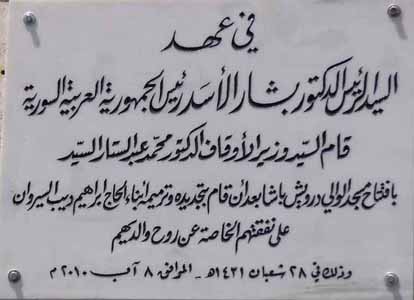 في عهد
السيد الرئيس الدكتور بشار الأسد رئيس الجمهورية العربية السورية
قام السيد وزير الأوقاف الدكتور محمد عبد الستار السيد
بافتتاح مسجد الوالي درويش باشا بعد أن قام بتجديده وترميمه أبناء الحاج ابراهيم ديب السيروان
على نفقتهم الخاصة عن روح والديهم
وذلك في ٢٨ شعبان ١٤٣١هـ - الموافق ٨ آب ٢٠١٠ م